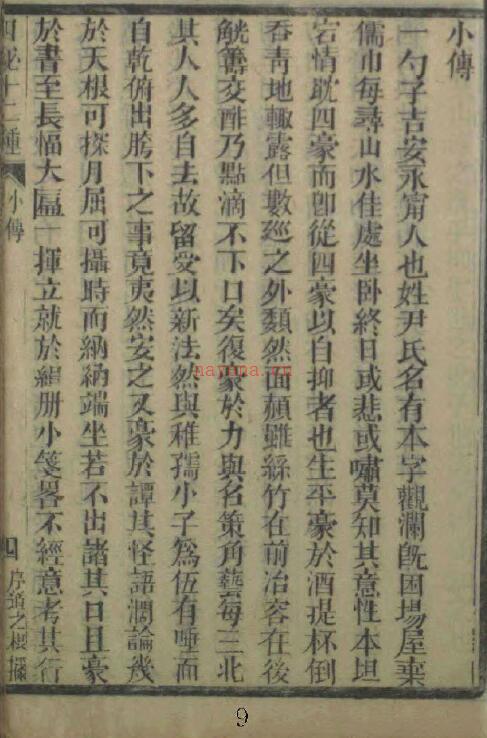 小傳
一勺子吉安永甯人也姓尹氏名有本字觀瀾旣困場屋棄
儒巾每尋山水佳處坐卧終日或悲或嘯莫知其意性本坦
宕情耽四豪而卽從四豪以自抑者也生平豪於酒提杯倒
吞靑地輙露但數廵之外頽然面頳雖絲竹在前冶容在後
觥籌交酢乃點滴不下口矣復豪於力與名策角藝每三北
其人人多自去故留受以新法然與稚孺小子爲伍有唾而
自乾俯出胯下之事竟夷然安之又豪於譚其怪語濶論幾
於天根可探月屈可攝時而納納端坐若不出諸其口且豪
於書至長幅大區一揮立就於細册小箋畧不經意考其行
四秘十二種
小傳
四
序道之樓
narona.cn
9